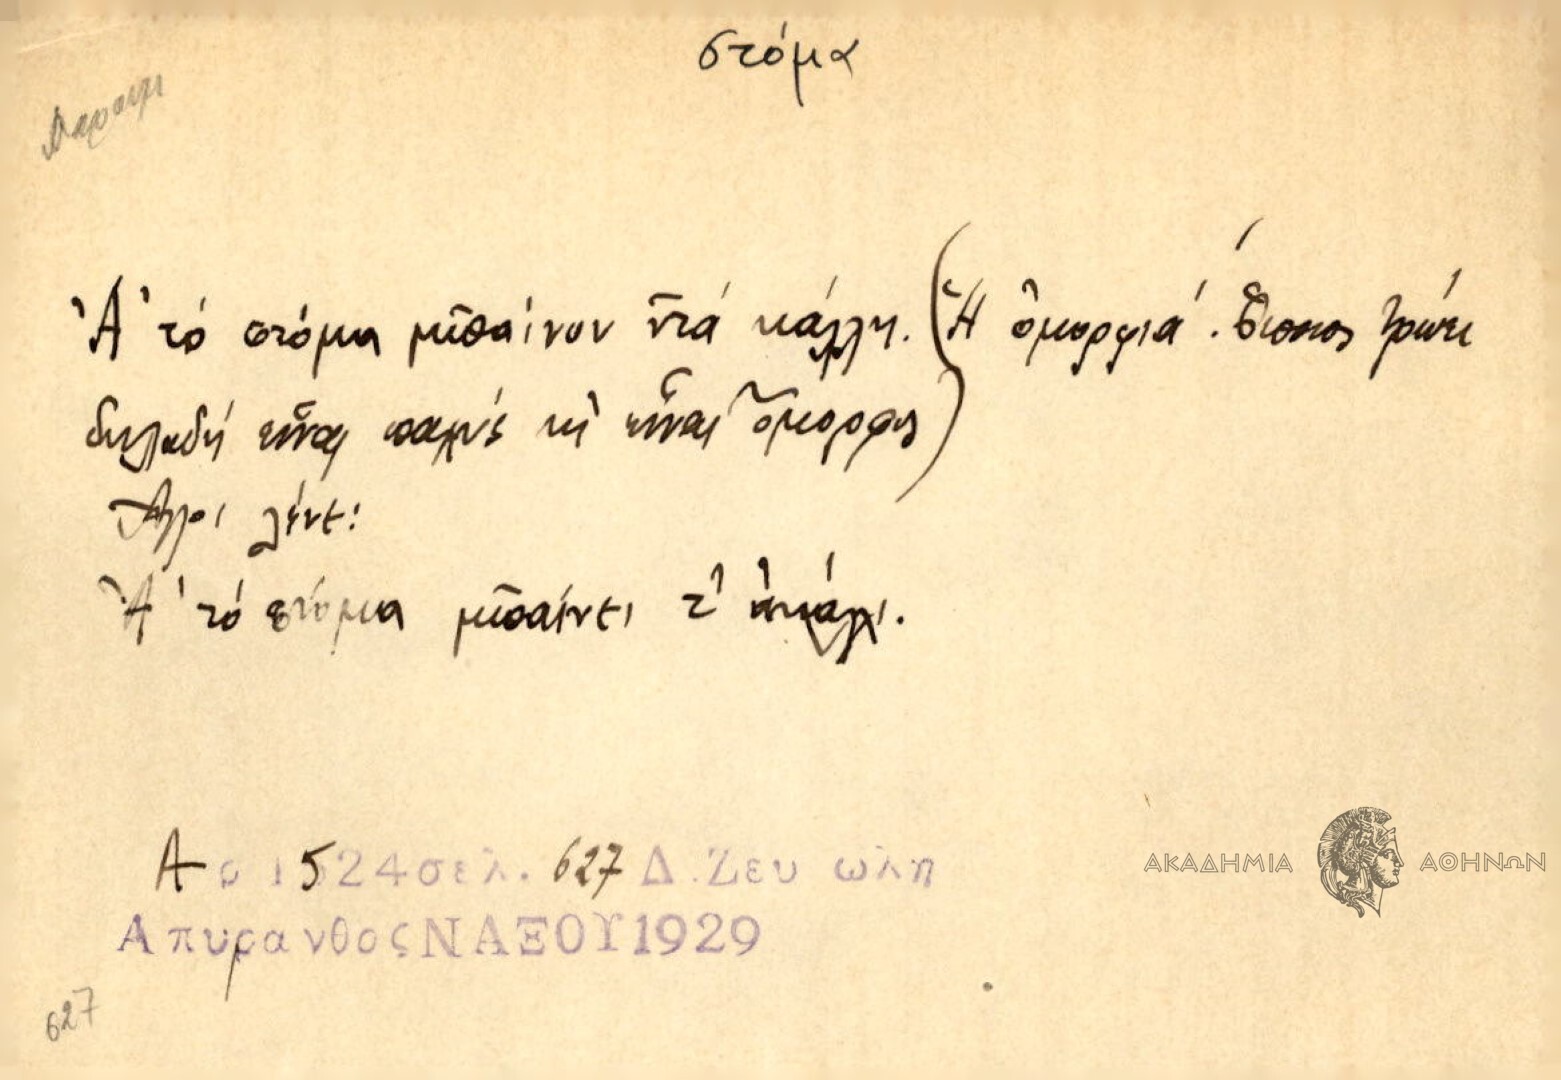 στόμα
Παροιμ
Ἀ' τό στόμα μπαίνουν ντά κάλλη. (Ἡ ὀμορφιά. Ὅποιος τρώει
δηλαδή εἶναι παχύς κι' εἶναι ὄμορφος)
Ἄλλοι λένε:
Ἀ' τό στόμα μπαίνει τ'
Αρ 1524 σελ. 627 Δ. Ζευωλη
Απυρανθος ΝΑΞΟΥ 1929
627
ΑΚΑΔΗΜΙΑ ΑΘΗΝΩΝ